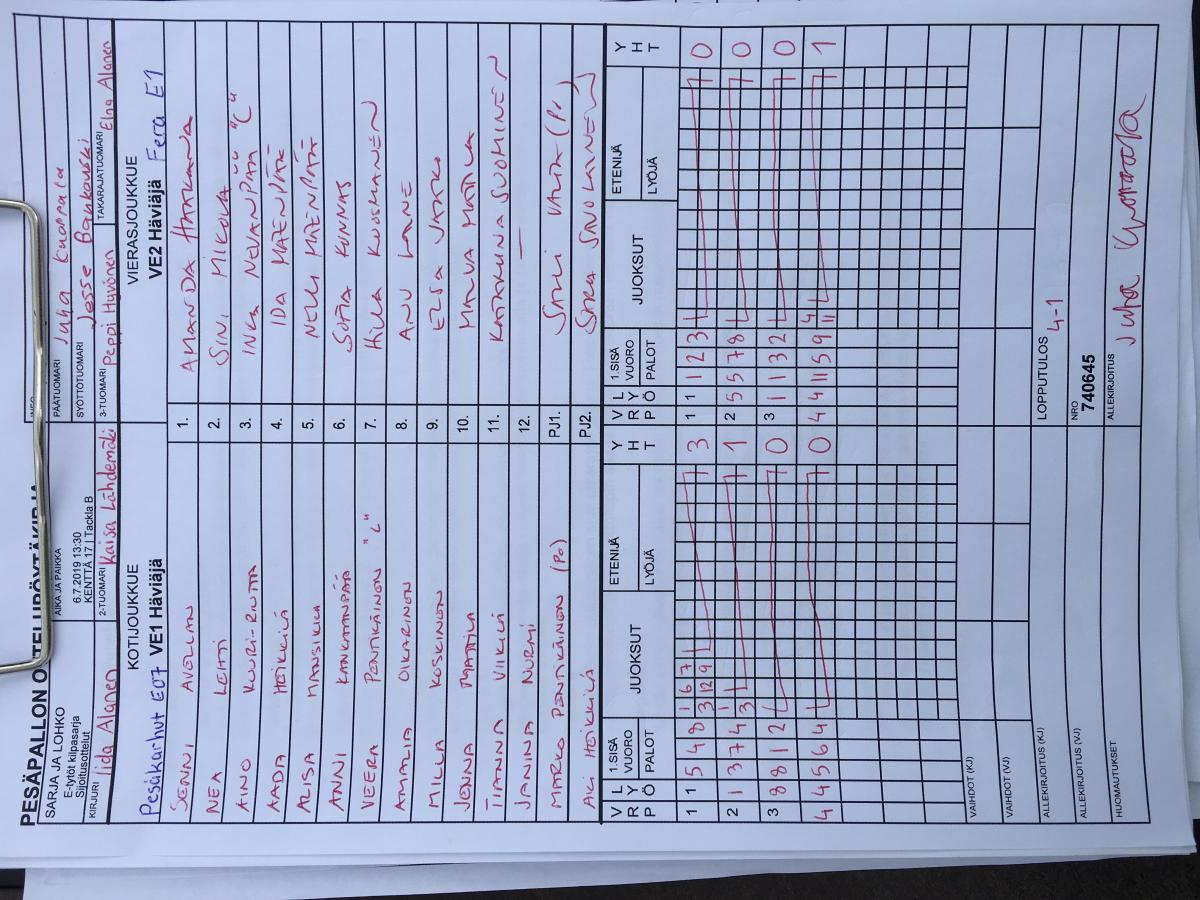 PESÄPALLON OTTELUPÖYTÄKIRJA
SARJA JA LOHKO
E-tytöt kilpasarja
Sijoitusottelut
AIKA JA PAIKKA
6.7.2019 13:30
KENTTÄ 17 | Tackla B
INFO
PÄÄTUOMARI Juha Kuoppala
SYÖTTÖTUOMARI Jesse Bankowski
KIRJURI Iida Alanen
2-TUOMARI Kaisa Lähdemäki
3-TUOMARI Peppi Hyvönen
TAKARAJATUOMARI Elna Alanen
KOTIJOUKKUE
Pesäkarhut E07 VE1 Häviäjä
VIERASJOUKKUE
VE2 Häviäjä Fera E1
SENNI AVELLAN 1. AMANDA HAAKANA
NEA LEHTI 2. SINI MIKOLA
AINO KUURI-RIUTTA 3. INKA NEVANPÄÄ "C"
AADA HEIKKILÄ 4. IDA MÄENPÄÄ
ALISA MANSIKKA 5. NELLI MÄENPÄÄ
ANNI KANKAANPÄÄ 6. SOFIA KUNNAS
VEERA PENTIKÄINEN "C" 7. HILLA KUOSMANEN
AMALIA OIKARINEN 8. ANU LANE
MILLA KOSKINEN 9. ELSA
JENNA MATTILA 10. MALVA MATALA
TIANNA VIIKKI 11. KATARIINA SUOMINEN
JANINA NURMI 12. —
MARKO PENTIKÄINEN (PO) PJ1. SALLI VALJA (PJ)
AKI HEIKKILÄ PJ2. SARKA SAVOLAINEN
VRP LYÖ 1.SISÄVUORO PALOT JUOKSUT ETENIJÄ LYÖJÄ YHT VRP LYÖ 1.SISÄVUORO PALOT JUOKSUT ETENIJÄ LYÖJÄ YHT
1 1 5 4 8 1 6 7 3 1 1 1 2 3 0
3 12 9
2 1 3 7 4 1 1 2 5 5 7 8 0
3
3 8 8 1 2 0 3 1 1 3 2 0
4 4 5 6 4 0 4 4 11 5 9 4 1
11
VAIHDOT (KJ)
VAIHDOT (VJ)
ALLEKIRJOITUS (KJ) LOPPUTULOS 4-1
ALLEKIRJOITUS (VJ) NRO
740645
HUOMAUTUKSET ALLEKIRJOITUS Juha Kuoppala